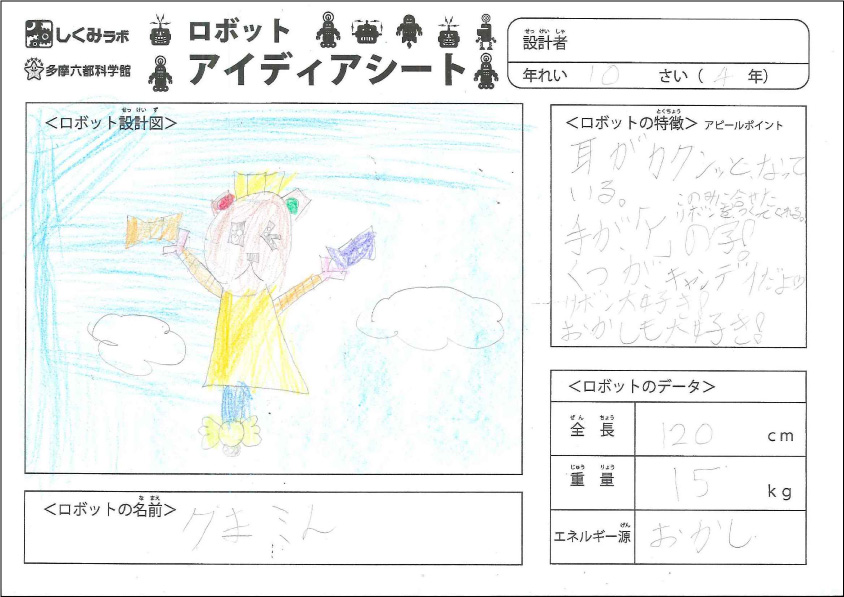 しくみラボ
多摩六都科学館
ロボット
アイディアシート
せっ けい しゃ
設計者
年れい 10 さい ( 4 年)
せっ けい ず
<ロボット設計図>
とくちょう
<ロボットの特徴> アピールポイント
耳がカクンッと、なって
いる。
リボンをつくってくれる。
手が「く」の字!
くつが、キャンディだよ
リボン大好き!
おかしも大好き!
な まえ
<ロボットの名前>
<ロボットのデータ>
ぜん ちょう
全長 120 cm
じゅう りょう
重量 15 kg
げん
エネルギー源 おかし